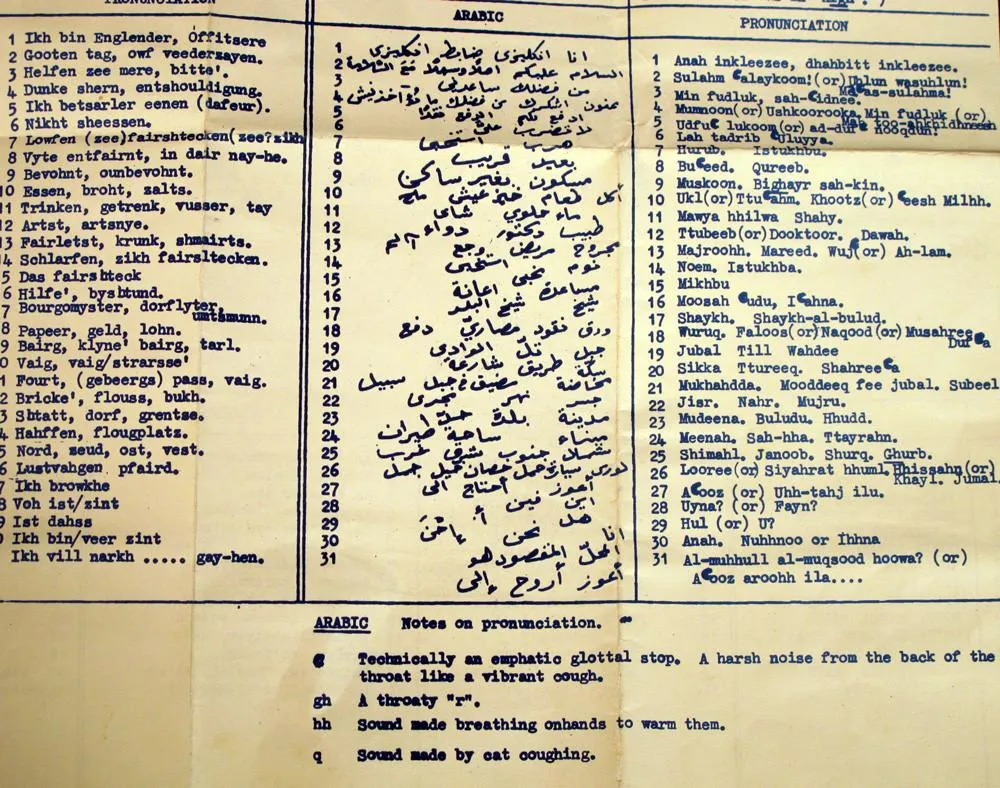 PRONUNCIATION
1 Ikh bin Englender, Offitsere
2 Gooten tag, owf veederzayen.
3 Helfen zee mere, bitte'.
4 Dunke shern, entshouldigung.
5 Ikh betsarler eenen (dafeur).
6 Nikht sheessen.
7 Lowfen (zee)fairshtecken(zee?zikh
8 Vyte entfairnt, in dair nay-he.
9 Bevohnt, ounbevohnt.
0 Essen, broht, zalts.
1 Trinken, getrenk, vusser, tay
2 Artst, artsnye.
3 Fairletst, krunk, shmairts.
4 Schlarfen, zikh fairsltecken.
5 Das fairshteck
6 Hilfe', byshtund.
7 Bourgomyster, dorflyter,
umtsmunn.
8 Papeer, geld, lohn.
9 Bairg, klyne' bairg, tarl.
0 Vaig, vaig/strarsse'
1 Fourt, (gebeergs) pass, vaig.
2 Bricke', flouss, bukh.
3 Shtatt, dorf, grentse.
4 Hahffen, flougplatz.
5 Nord, zeud, ost, vest.
6 Lustvahgen pfaird.
7 Ikh browkhe
8 Voh ist/zint
9 Ist dahss
0 Ikh bin/veer zint
Ikh vill narkh ..... gay-hen.
ARABIC
1 انا انكليزى ضابط انكليزى
2 السلام عليكم اهلا وسهلا مع السلامة
3 من فضلك ساعدنى
4 ممنون اشكرك من فضلك
5 ادفع لكم ادفع نقدا
6 لا تضرب على
7 هرب استخبى
8 بعيد قريب
9 مسكون بغير ساكن
10 أكل طعام خبز عيش ملح
11 ماء حلوى شاى
12 طبيب دكتور دواء
13 مجروح مريض وجع آلم
14 نوم استخبى
15 مخبى
16 مساعدة اعانة
17 شيخ شيخ البلد
18 ورق نقود مصارى دفع
19 جبل تل الوادى
20 سكة طريق شارعة
21 مخاضة مضيق فى جبل سبيل
22 جسر نهر مجرى
23 مدينة بلدة حد
24 ميناء ساحة طيران
25 شمال جنوب شرق غرب
26 لورى سيارة حمل حصان خيل جمل
27 أعوز أحتاج الى
28 اين فين
29 هل أ
30 انا نحن إحنا
31 المحل المقصود هو
أعوز أروح إلى
PRONUNCIATION
1 Anah inkleezee, dhahbitt inkleezee.
2 Sulahm Calaykoom!(or)Uhlun wasuhlun!
Ma Cas-sulahma!
3 Min fudluk, sah-Cidnee.
4 Mumnoon(or)Ushkoorooka. Min fudluk (or)
5 UdfuC lukoom(or) ad-dufC nooqdun!
6 Lah tadrib Culuyya.
7 Hurub. Istukhbu.
8 BuCeed. Qureeb.
9 Muskoon. Bighayr sah-kin.
10 Ukl(or)TtuCahm. Khootz(or)Ceesh Milhh.
11 Mawya hhilwa Shahy.
12 Ttubeeb(or)Dooktoor. Dawah.
13 Majroohh. Mareed. WujC(or) Ah-lam.
14 Noem. Istukhba.
15 Mikhbu
16 Moosah Cudu, ICahna.
17 Shaykh. Shaykh-al-bulud.
18 Wuruq. Faloos(or)Naqood(or)Musahree
DufCa
19 Jubal Till Wahdee
20 Sikka Ttureeq. ShahreeCa
21 Mukhahdda. Mooddeeq fee jubal. Subeel
22 Jisr. Nahr. Mujru.
23 Mudeena. Buludu. Hhudd.
24 Meenah. Sah-hha. Ttayrahn.
25 Shimahl. Janoob. Shurq. Ghurb.
26 Looree(or)Siyahrat hhuml.Hhissahn(or)
Khayl. Jumal.
27 ACooz (or) Uhh-tahj ilu.
28 Uyna? (or) Fayn?
29 Hul (or) U?
30 Anah. Nuhhnoo or Ihhna
31 Al-muhhull al-muqsood hoowa? (or)
ACooz aroohh ila....
ARABIC Notes on pronunciation.
C Technically an emphatic glottal stop. A harsh noise from the back of the
throat like a vibrant cough.
gh A throaty "r".
hh Sound made breathing onhands to warm them.
q Sound made by cat coughing.